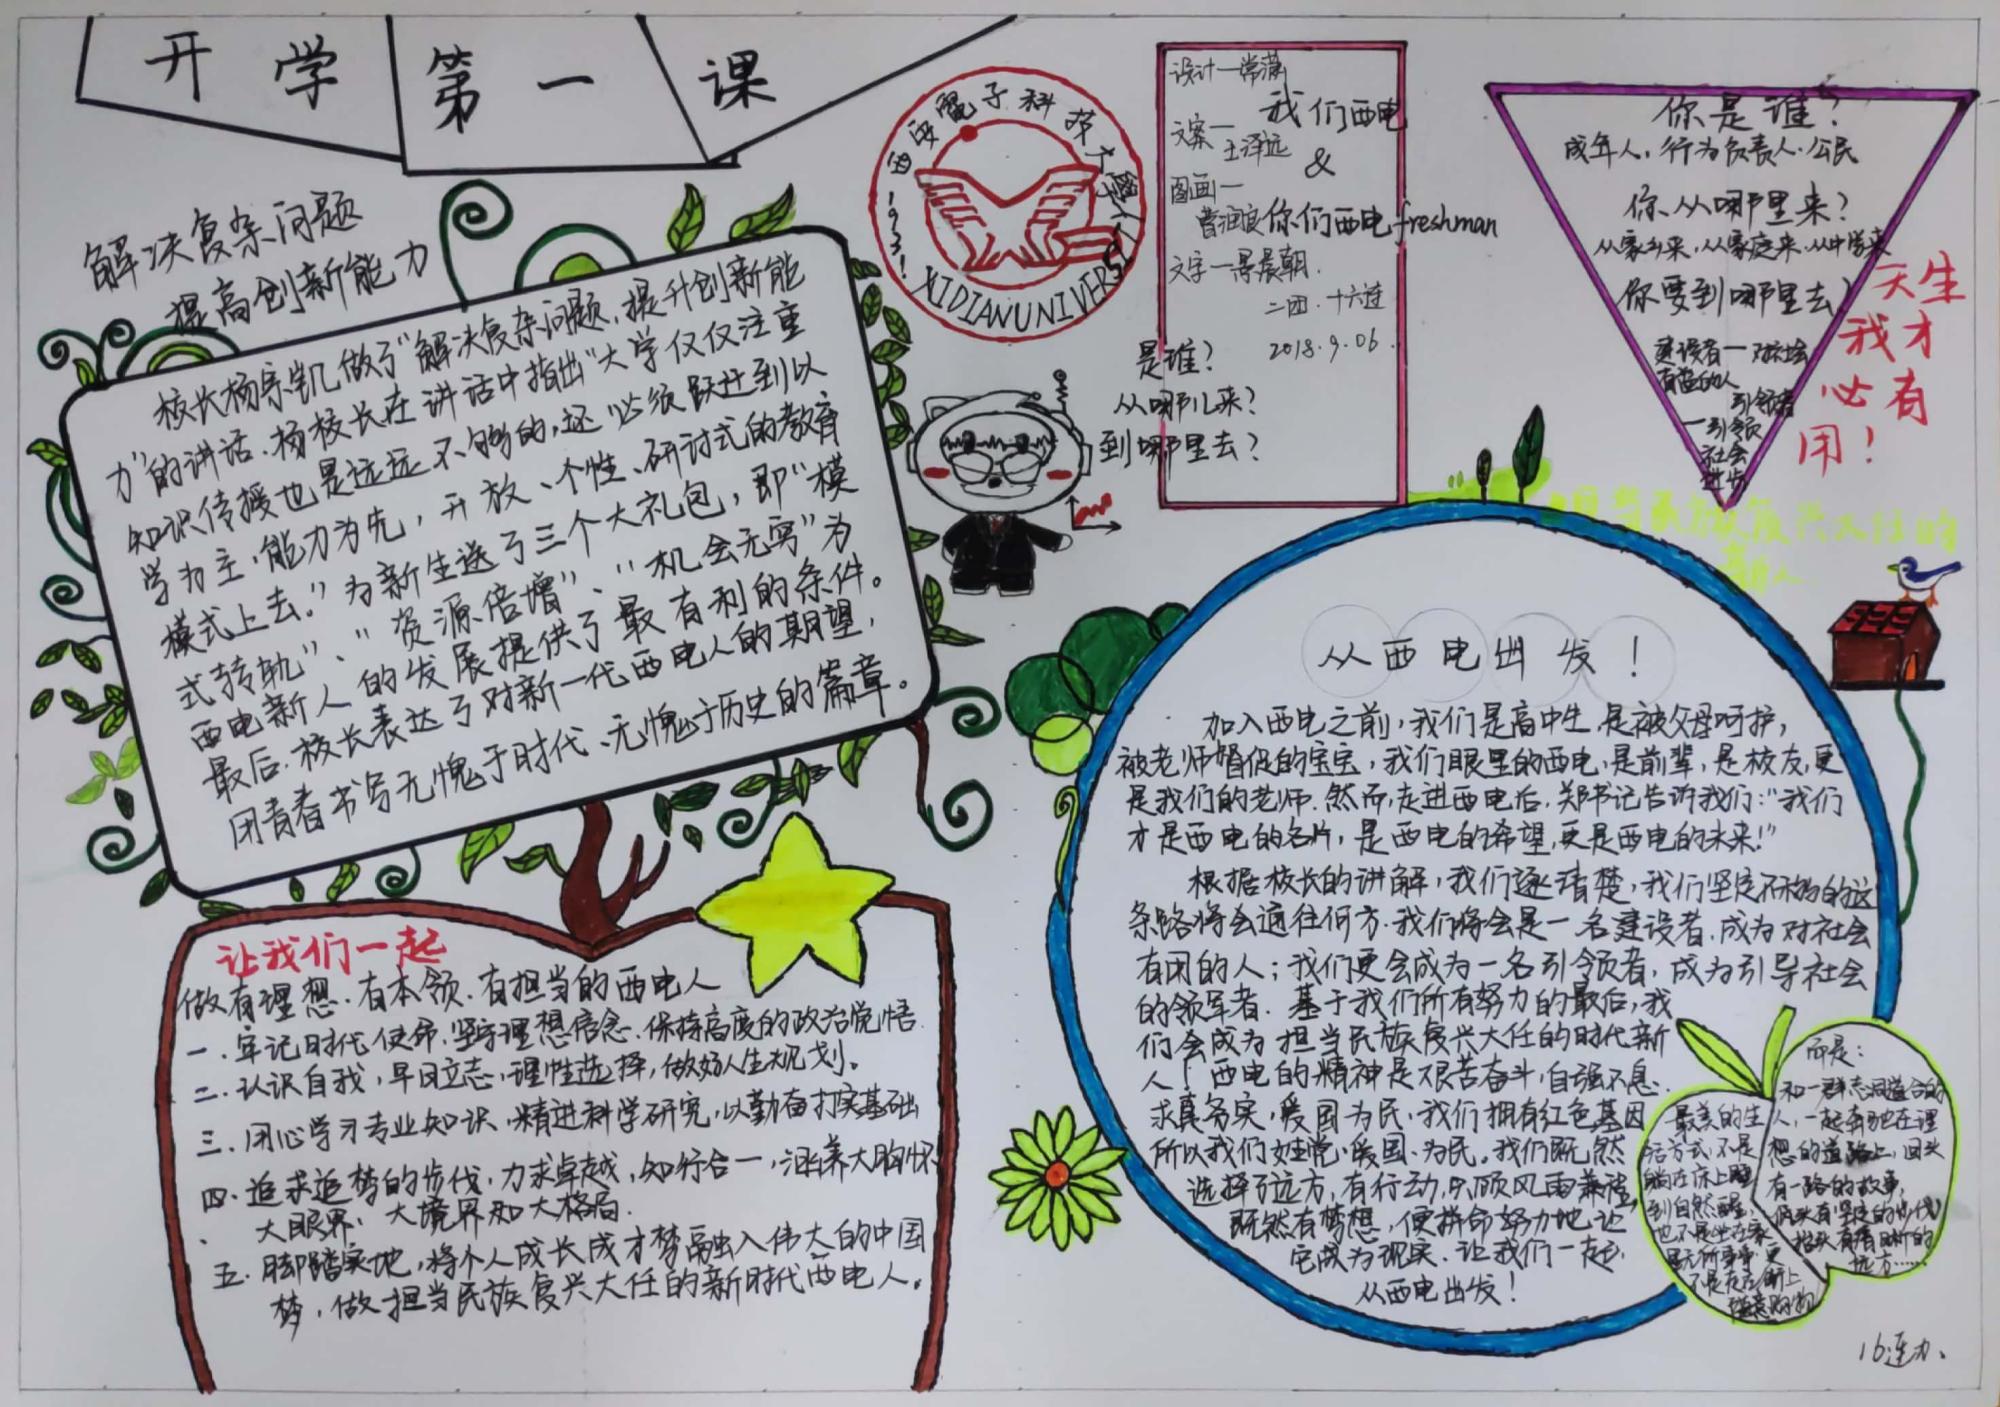 开学第一课
解决复杂问题
提高创新能力
校长杨宗凯做了“解决复杂问题,提升创新能
力”的讲话.杨校长在讲话中指出“大学仅仅注重
知识传授也是远远不够的,还必须跃迁到以
学为主,能力为先,开放、个性、研讨式的教育
模式上去。”为新生送了三个大礼包,即“模
式转轨”、“资源倍增”、“机会无穷”为
西电新人的发展提供了最有利的条件。
最后.校长表达了对新一代西电人的期望,
团青春书写无愧于时代、无愧于历史的篇章。
让我们一起
做有理想.有本领.有担当的西电人
一.牢记时代使命.坚守理想信念.保持高度的政治觉悟.
二.认识自我,早日立志,理性选择,做好人生规划。
三.用心学习专业知识,精进科学研究,以勤奋打实基础
四.追求追梦的步伐,力求卓越,知行合一,涵养大胸怀
大眼界、大境界和大格局.
五.脚踏实地,将个人成长成才梦融入伟大的中国
梦,做担当民族复兴大任的新时代西电人。
西安電子科技大學
1931
XIDIAN UNIVERSITY
设计—常潇
文案—
王泽远
图画—
曹润良
文字—景晨朝.
二团.十六连
2018.9.06.
我们西电
&
你们西电freshman
是谁?
从哪儿来?
到哪里去?
你是谁?
成年人,行为负责人.公民
你从哪里来?
从家乡来,从家庭来.从中学来
你要到哪里去?
建设者—对社会
有益的人
引领者
—引领
社会
进步
天生
我才
必有
用!
担当民族复兴大任的
从西电出发!
加入西电之前,我们是高中生.是被父母呵护,
被老师督促的宝宝,我们眼里的西电,是前辈,是校友,更
是我们的老师.然而,走进西电后,郑书记告诉我们:“我们
才是西电的名片,是西电的希望,更是西电的未来!”
根据校长的讲解,我们逐清楚,我们坚定不移的这
条路将会通往何方.我们将会是一名建设者,成为对社会
有用的人;我们更会成为一名引领者,成为引导社会
的领军者.基于我们所有努力的最后,我
们会成为担当民族复兴大任的时代新
人!西电的精神是艰苦奋斗,自强不息.
求真务实,爱国为民.我们拥有红色基因
所以我们姓党.爱国.为民.我们既然
选择了远方,有行动,只顾风雨兼程,
既然有梦想,便拼命努力地让
它成为现实.让我们一起
从西电出发!
最美的生
活方式不是
躺在床上睡
到自然醒,
也不是坐在家
里无所事事.更
不是走在街上
随意购物
而是:
和一群志同道合的
人,一起奔跑在理
想的道路上,回头
有一路的故事,
低头有坚定的步伐
抬头有清晰的
远方……
16连办.